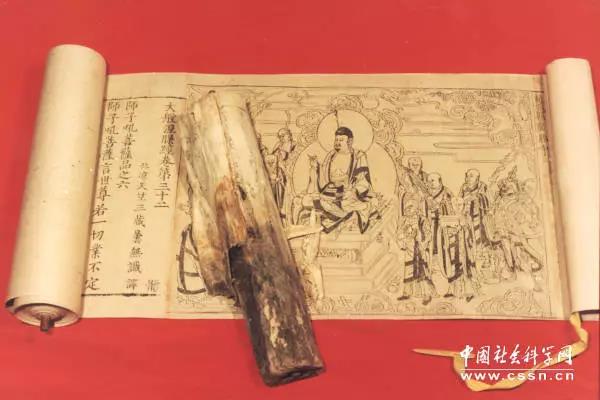 大般涅槃經卷第三十二
北涼天竺三藏曇無讖 譯
師子吼菩薩品之六
師子吼菩薩言世尊若一切業不定
中國社会科学网
www.cssn.cn